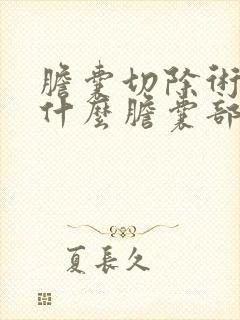 膽囊切除術
什麼膽囊部
夏長久